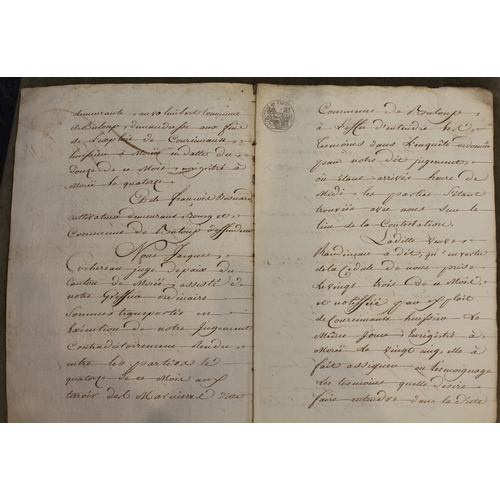 demeurante au  Commune
de Buloup, demanderesse aux fins
de l'exploit de Courcenault
huissier a Morée en datte du
douze de ce Mois enregistré a
Morée le quatorze
Et de françois
cultivateur demeurant Bourg et
Commune de Buloup deffendeur
Nous Jacques
juge depaix du
Canton de Morée assisté de
notre Greffier ordinaire
Sommes transportés en
Exécution de notre Jugement
Contradictoirement Rendre
entre les parties le
quatorze de ce Mois aux
terroir des Marnieres ditte
Commune de Buloup
a Leffet d'entendre les
temoins dans L'enquête ordonnée
par notre dit jugement,
ou étant arrivée heure de
Midi, les parties S'étant
trouvées avec nous sur le
lieu de la Contestation
Laditte veuve
a dit, qu'en vertu
de la Cedule de nous prise
le vingt trois de ce Mois
et notiffiée par Exploit
de Courcenault huissier le
Même jour Enregistré a
Morée le vingt elle a
fait assigner en temoignage
les temoins quelle désire
faire entendre dans la ditte